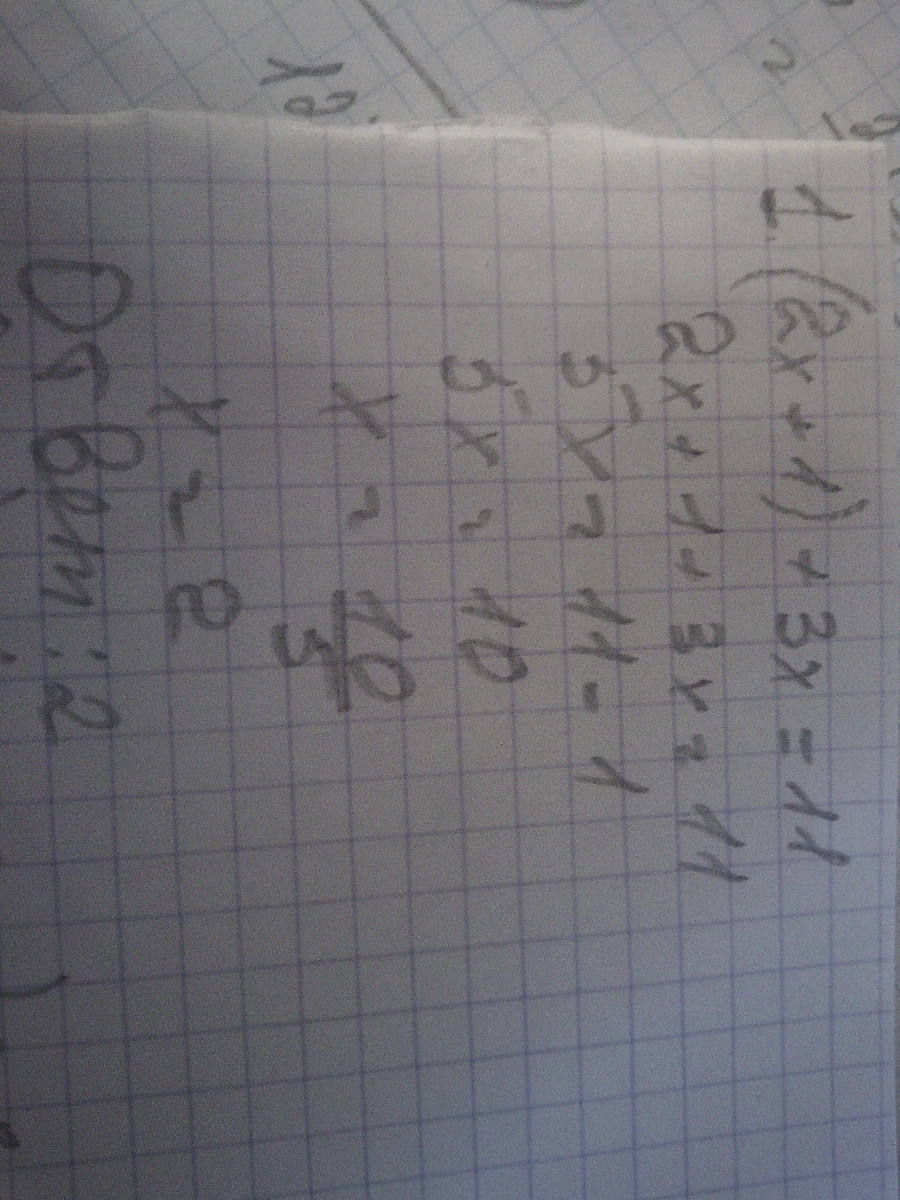 1. (2x + 1) + 3x = 11
2x + 1 + 3x = 11
5x = 11 - 1
5x = 10
x = 10/5
x = 2
Ответ: 2